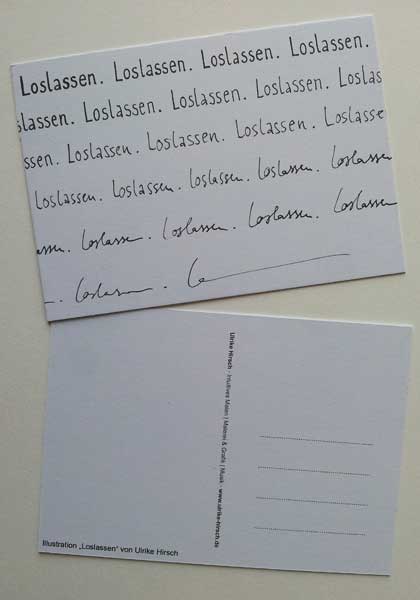 Loslassen. Loslassen. Loslassen. Loslassen.
slassen. Loslassen. Loslassen. Loslassen. Loslas
ssen. Loslassen. Loslassen. Loslassen. Loslasse
Loslassen. Loslassen. Loslassen. Loslassen. Loslassen
assen. Loslassen. Loslassen. Loslassen. Loslassen
Loslassen.
Ulrike Hirsch · Intuitives Malen | Malerei & Grafik | Musik · www.ulrike-hirsch.de
Illustration „Loslassen“ von Ulrike Hirsch